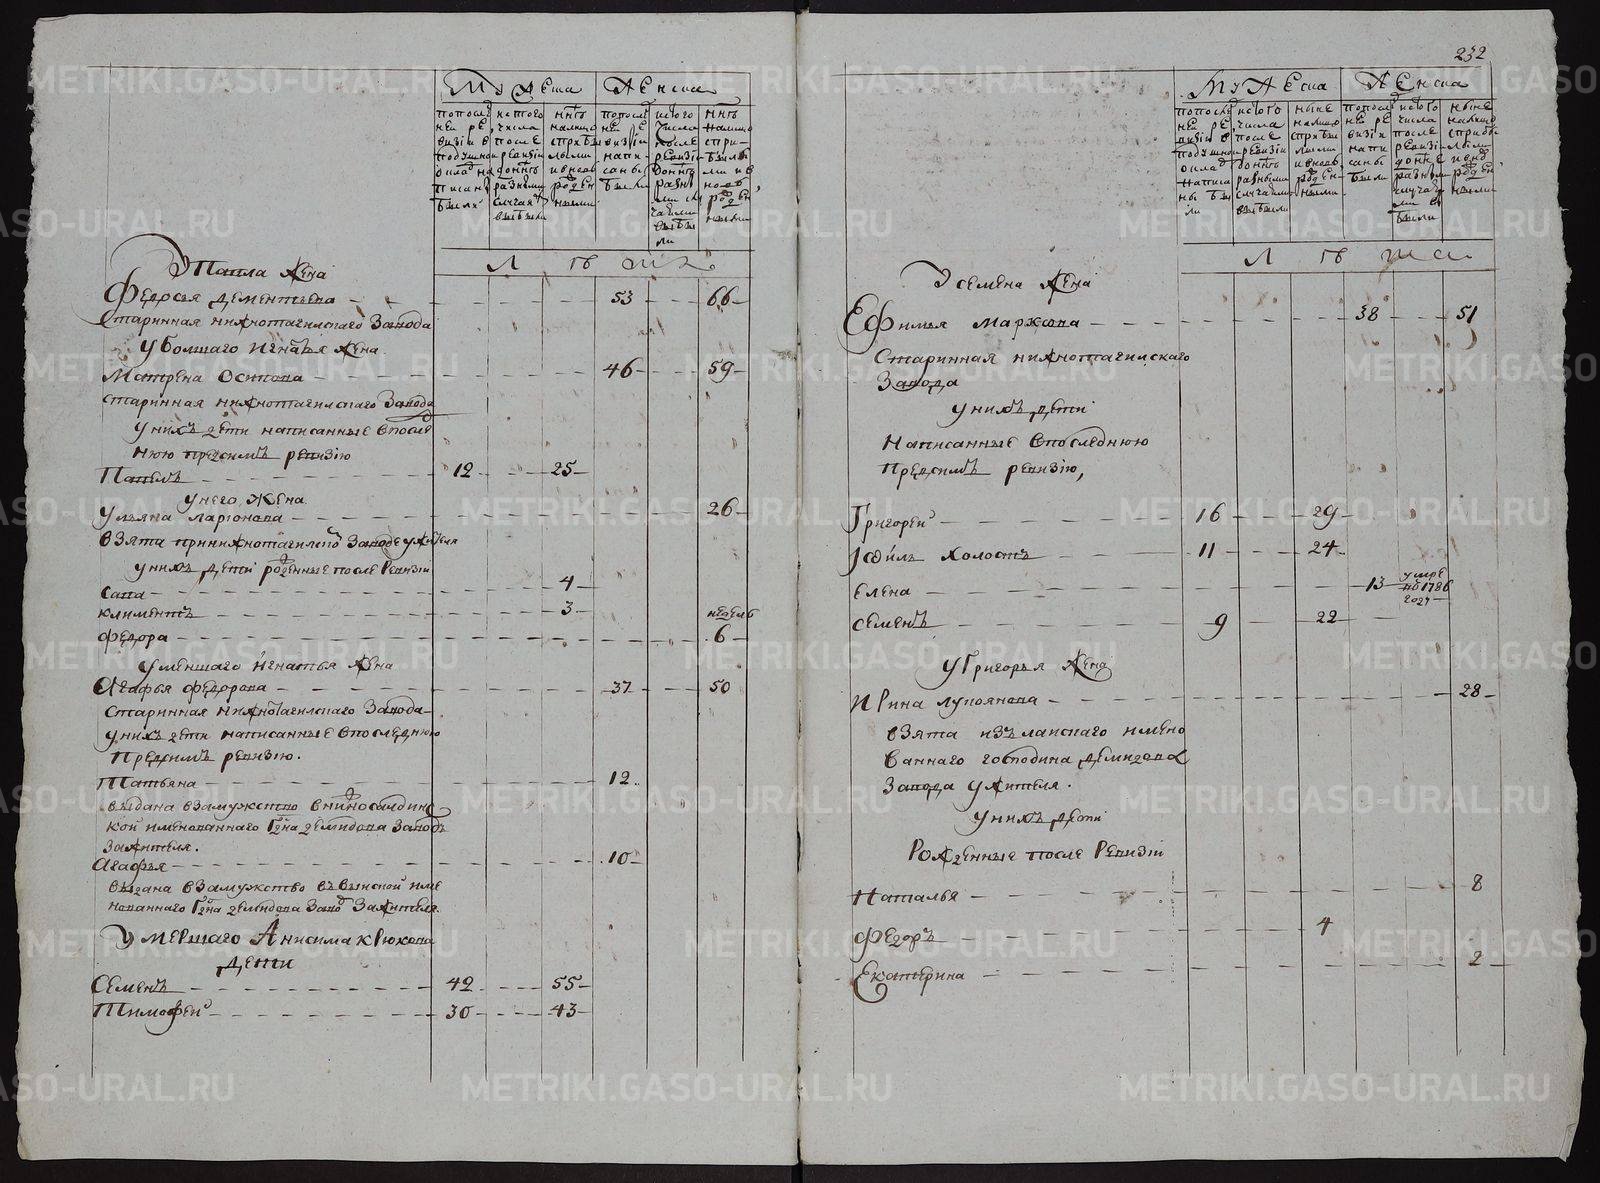 Мужеска
Женска
попослѣ
ней ре
визіи в
подушной
окладъ на
писаны
были
ис того
числа
после
ревизіи
донынѣ
разными
случаями
выбыли
нынѣ
налицо
сприбы
лыми
и вновь
рожден
ными
попослѣ
ней ре
визіи
напи
саны
были
ис того
числа
после
ревизіи
донынѣ
разны
ми слу
чаями
выбы
ли
нынѣ
налицо
с при-
былы
ми и в
новь
рожден
ными
Л ѣ т а
У Павла жена
Федосья дементьева 53 66
Старинная нижнотагилскаго Завода
У болшаго Игнатья жена
Матрена Осипова 46 59
старинная нижнотагилскаго Завода
У нихъ дети написанные впослѣ
нюю предсимъ ревизію
Павелъ 12 25
У него жена
Ульяна Ларіонова 26
взята принижнотагилскомъ Заводе у жителя
У нихъ дети рожденные после Ревизіи
Сава 4
Климентъ 3
недель
Федора 6
У меншаго Игнатья жена
Агафья федорова 37 50
Старинная нижнотагилскаго Завода
У нихъ дети написанные впоследнюю
предсимъ ревизію.
Татьяна 12
выдана взамужство внижносалдинс
кой именованнаго Гдна демидова Заводъ
Зажителя.
Агафья 10
выдана взамужство въ выйской име
нованнаго Гдна демидова Заводъ Зажителя
Умершаго Анисима Крюкова
дети
Семенъ 42 55
Тимофей 30 43
232
Мужеска
Женска
попослѣ
ней ре
визіи в
подушной
окладъ
написа
ны бы
ли
ис того
числа
после
ревизіи
донынѣ
разными
случаями
выбыли
ныне
налицо
сприбы
лыми
и вновь
рожден
ными
попослѣ
ней ре
визіи
напи
саны
были
ис того
числа
после
ревизі
доне
разным
случая
ми в
были
ныне
налицо
сприбы
лыми
и внов
рожден
ными
Л ѣ т а
У семена жена
Ефимья маркова 38 51
Старинная нижнотагилскаго
Завода
У нихъ дети
Написанные впоследнюю
предсимъ ревизію,
Григорей 16 29
Іовиль холостъ 11 24
Елена 13 умре
въ 1786
годѣ
Семенъ 9 22
У Григорья жена
Ирина лупоянова 28
взята изъ лайскаго имено
ваннаго господина демидова
Завода у жителя.
У нихъ дети
Рожденные после Ревизіи
Наталья 8
Федоръ 4
Екатерина 2
METRIKI.GASO-URAL.RU